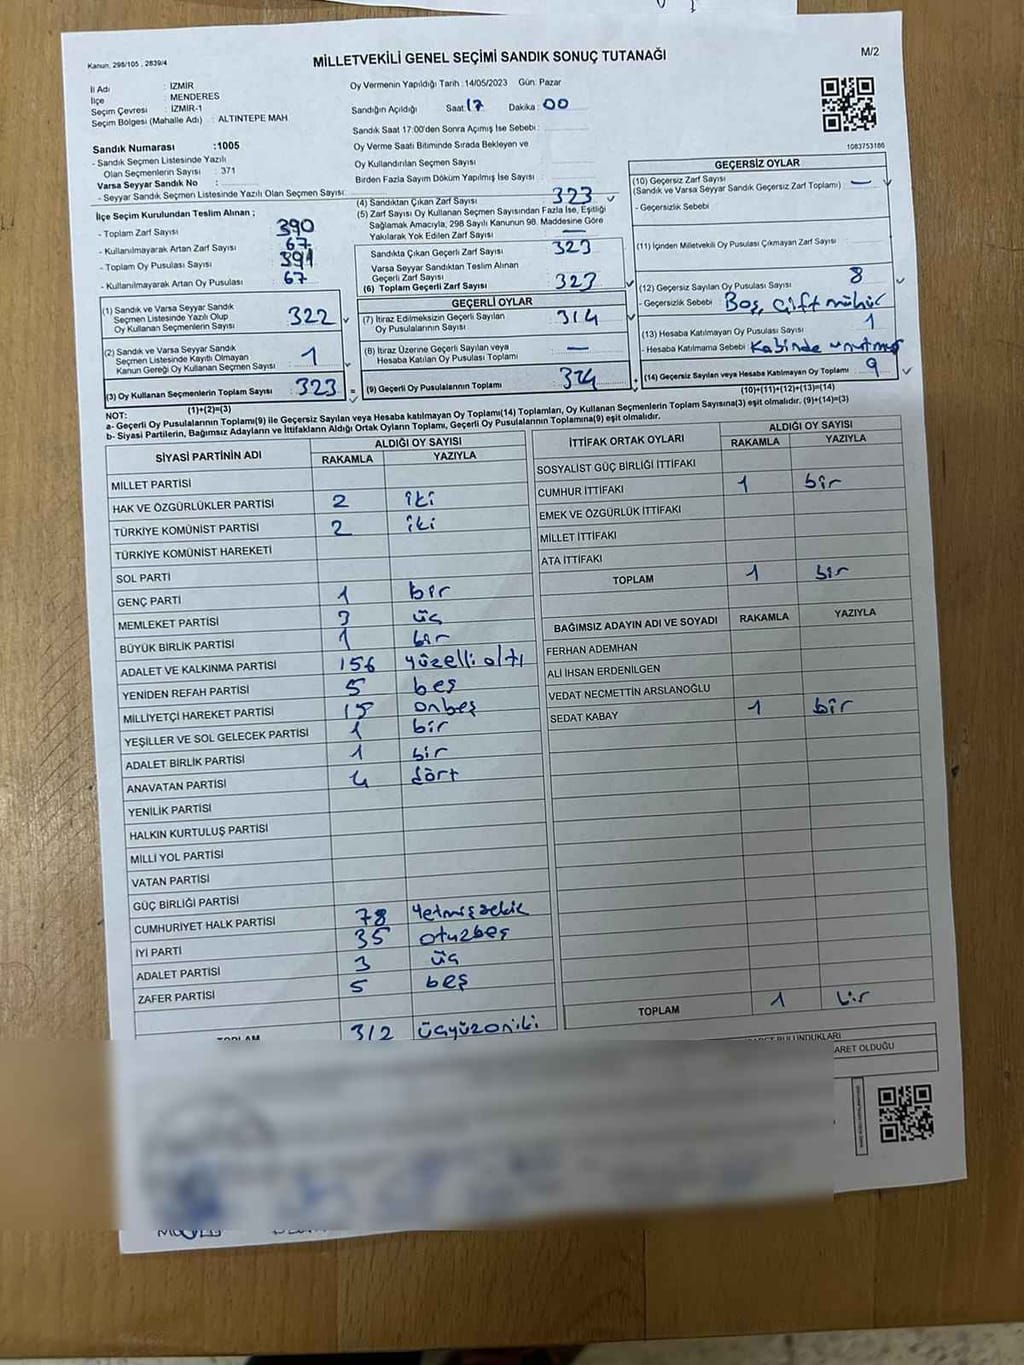 Kanun, 298/105 , 2839/4
MİLLETVEKİLİ GENEL SEÇİMİ SANDIK SONUÇ TUTANAĞI
M/2
İl Adı : İZMİR
İlçe : MENDERES
Seçim Çevresi : İZMİR-1
Seçim Bölgesi (Mahalle Adı) : ALTINTEPE MAH
Sandık Numarası :1005
- Sandık Seçmen Listesinde Yazılı
Olan Seçmenlerin Sayısı : 371
Varsa Seyyar Sandık No :
- Seyyar Sandık Seçmen Listesinde Yazılı Olan Seçmen Sayısı:
Oy Vermenin Yapıldığı Tarih :14/05/2023 Gün: Pazar
Sandığın Açıldığı Saat: 17 Dakika : 00
Sandık Saat 17:00'den Sonra Açımış İse Sebebi :
Oy Verme Saati Bitiminde Sırada Bekleyen ve
Oy Kullandırılan Seçmen Sayısı :
Birden Fazla Sayım Döküm Yapılmış İse Sayısı :
1083753186
İlçe Seçim Kurulundan Teslim Alınan ;
- Toplam Zarf Sayısı : 390
- Kullanılmayarak Artan Zarf Sayısı : 67
- Toplam Oy Pusulası Sayısı : 391
- Kullanılmayarak Artan Oy Pusulası : 67
(1) Sandık ve Varsa Seyyar Sandık
Seçmen Listesinde Yazılı Olup
Oy Kullanan Seçmenlerin Sayısı 322
(2) Sandık ve Varsa Seyyar Sandık
Seçmen Listesinde Kayıtlı Olmayan
Kanun Gereği Oy Kullanan Seçmen Sayısı 1
(3) Oy Kullanan Seçmenlerin Toplam Sayısı 323
(1)+(2)=(3)
(4) Sandıktan Çıkan Zarf Sayısı 323
(5) Zarf Sayısı Oy Kullanan Seçmen Sayısından Fazla İse, Eşitliği
Sağlamak Amacıyla, 298 Sayılı Kanunun 98. Maddesine Göre
Yakılarak Yok Edilen Zarf Sayısı —
Sandıkta Çıkan Geçerli Zarf Sayısı 323
Varsa Seyyar Sandıktan Teslim Alınan
Geçerli Zarf Sayısı
(6) Toplam Geçerli Zarf Sayısı 323
GEÇERLİ OYLAR
(7) İtiraz Edilmeksizin Geçerli Sayılan
Oy Pusulalarının Sayısı 314
(8) İtiraz Üzerine Geçerli Sayılan veya
Hesaba Katılan Oy Pusulası Toplamı —
(9) Geçerli Oy Pusulalarının Toplamı 314
GEÇERSİZ OYLAR
(10) Geçersiz Zarf Sayısı
(Sandık ve Varsa Seyyar Sandık Geçersiz Zarf Toplamı) —
- Geçersizlik Sebebi
(11) İçinden Milletvekili Oy Pusulası Çıkmayan Zarf Sayısı
(12) Geçersiz Sayılan Oy Pusulası Sayısı 8
- Geçersizlik Sebebi : Boş, çift mühür
(13) Hesaba Katılmayan Oy Pusulası Sayısı 1
- Hesaba Katılmama Sebebi : Kabinde unutmuş
(14) Geçersiz Sayılan veya Hesaba Katılmayan Oy Toplamı 9
(10)+(11)+(12)+(13)=(14)
NOT:
a- Geçerli Oy Pusulalarının Toplamı(9) ile Geçersiz Sayılan veya Hesaba katılmayan Oy Toplamı(14) Toplamları, Oy Kullanan Seçmenlerin Toplam Sayısına(3) eşit olmalıdır. (9)+(14)=(3)
b- Siyasi Partilerin, Bağımsız Adayların ve İttifakların Aldığı Ortak Oyların Toplamı, Geçerli Oy Pusulalarının Toplamına(9) eşit olmalıdır.
SİYASİ PARTİNİN ADI
ALDIĞI OY SAYISI
RAKAMLA YAZIYLA
MİLLET PARTİSİ
HAK VE ÖZGÜRLÜKLER PARTİSİ 2 iki
TÜRKİYE KOMÜNİST PARTİSİ 2 iki
TÜRKİYE KOMÜNİST HAREKETİ
SOL PARTİ
GENÇ PARTİ 1 bir
MEMLEKET PARTİSİ 3 üç
BÜYÜK BİRLİK PARTİSİ 1 bir
ADALET VE KALKINMA PARTİSİ 156 yüzelli altı
YENİDEN REFAH PARTİSİ 5 beş
MİLLİYETÇİ HAREKET PARTİSİ 15 onbeş
YEŞİLLER VE SOL GELECEK PARTİSİ 1 bir
ADALET BİRLİK PARTİSİ 1 bir
ANAVATAN PARTİSİ 4 dört
YENİLİK PARTİSİ
HALKIN KURTULUŞ PARTİSİ
MİLLİ YOL PARTİSİ
VATAN PARTİSİ
GÜÇ BİRLİĞİ PARTİSİ
CUMHURİYET HALK PARTİSİ 78 yetmişsekiz
İYİ PARTİ 35 otuzbeş
ADALET PARTİSİ 3 üç
ZAFER PARTİSİ 5 beş
TOPLAM 312 üçyüzoniki
İTTİFAK ORTAK OYLARI
ALDIĞI OY SAYISI
RAKAMLA YAZIYLA
SOSYALİST GÜÇ BİRLİĞİ İTTİFAKI
CUMHUR İTTİFAKI 1 bir
EMEK VE ÖZGÜRLÜK İTTİFAKI
MİLLET İTTİFAKI
ATA İTTİFAKI
TOPLAM 1 bir
BAĞIMSIZ ADAYIN ADI VE SOYADI RAKAMLA YAZIYLA
FERHAN ADEMHAN
ALİ İHSAN ERDENİLGEN
VEDAT NECMETTİN ARSLANOĞLU
SEDAT KABAY 1 bir
TOPLAM 1 bir
BULUNDUKLARI
ARET OLDUĞU